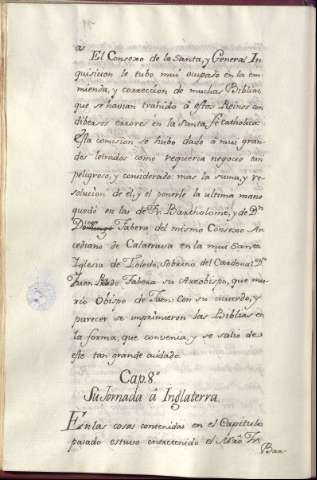 El Consexo de la Santa, y General In
quisicion le tubo mui ocupado en la en
mienda, y correccion de muchas Biblias,
que se havian trahido â estos Reinos con
diversos errores en la Santa fe Catholica.
Esta comision se hubo dado a mui gran
des letrados como requeria negocio tan
peligroso, y considerado mas la suma, y re
solucion de el, y el ponerle la ultima mano
quedó en las de Fr. Bartholomé, y de Dn
Tabera del mismo Consexo Ar
cediano de Calatrava en la mui Santa
Iglesia de Toledo, Sobrino del Cardenal Dn
Juan Tabera su Arzobispo, que mu
rio Obispo de Jaen: Con su acuerdo, y
parecer se imprimieron las Biblias en
la forma, que convenia, y se salio de
este tan grande cuidado.
Cap. 8.º
Su Jornada â Inglaterra.
En las cosas contenidas en el Capitulo
pasado estuvo entretenido el Fr.
Bar